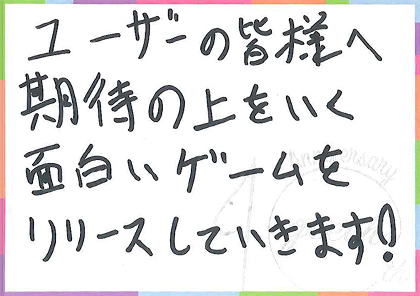 ユーザーの皆様へ
期待の上をいく
面白いゲームを
リリースしていきます!
Anniversary